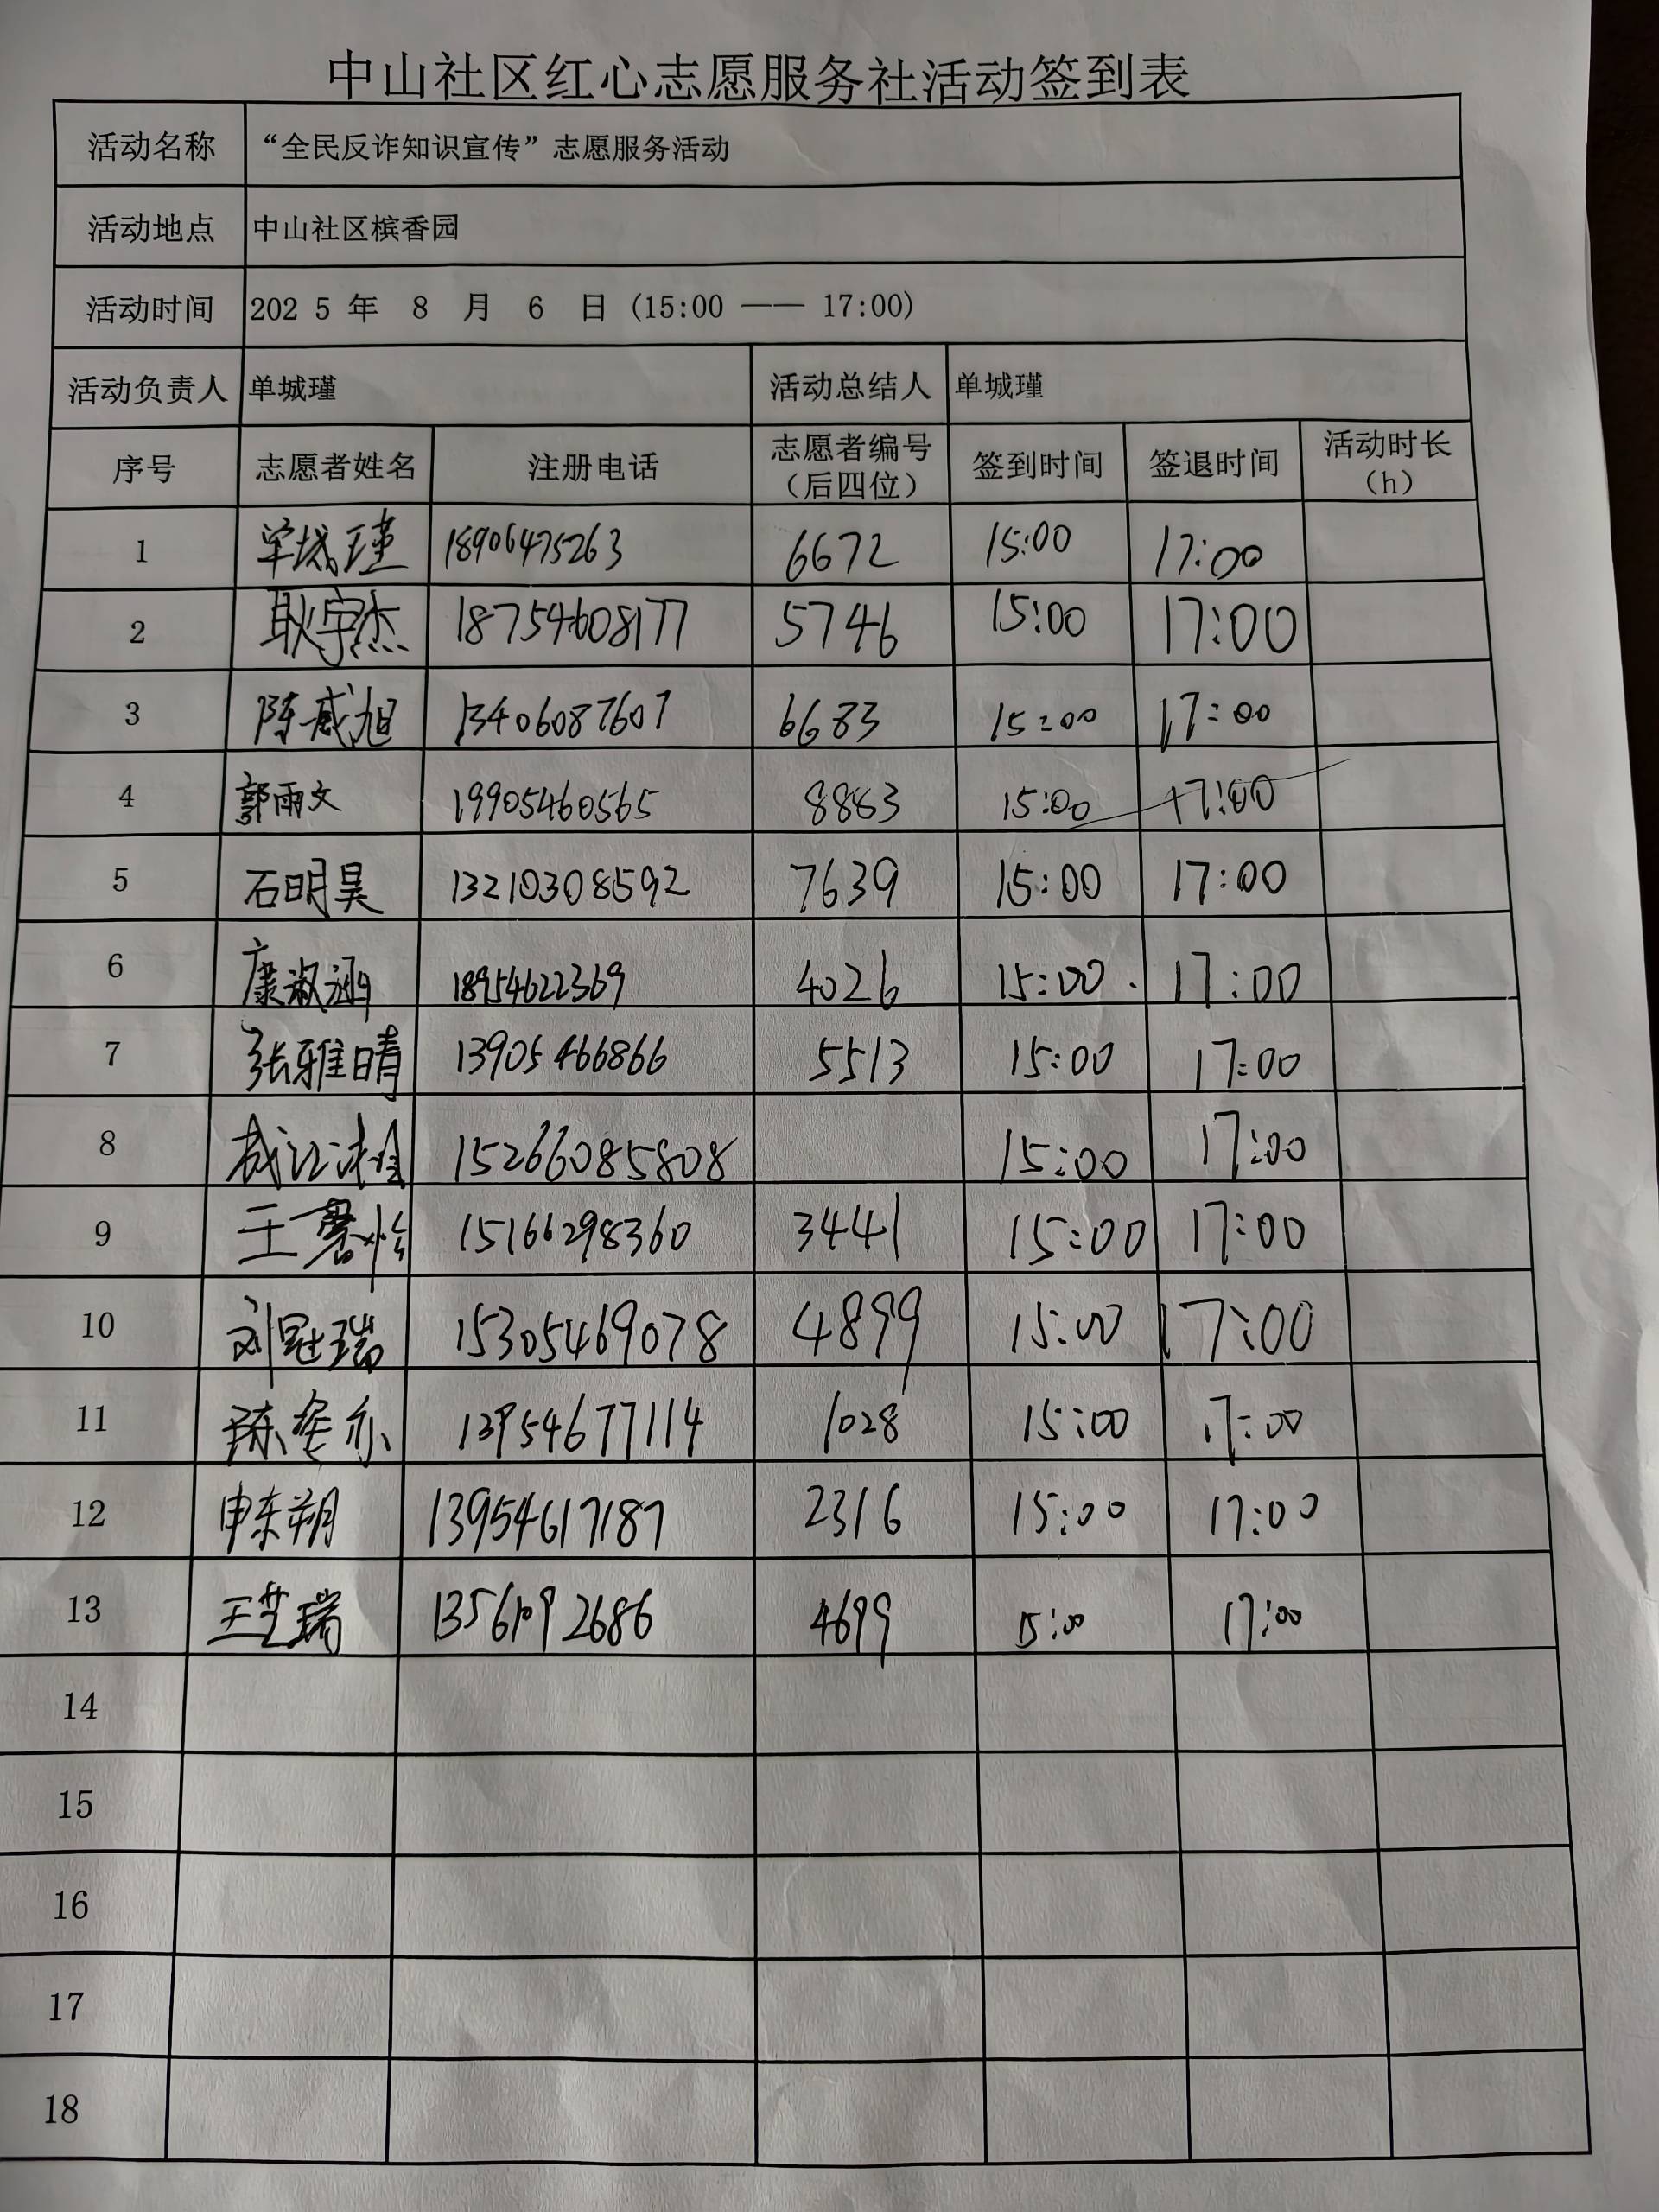 中山社区红心志愿服务社活动签到表
活动名称 “全民反诈知识宣传”志愿服务活动
活动地点 中山社区槟香园
活动时间 202 5 年 8 月 6 日 (15:00 —— 17:00)
活动负责人 单城瑾 活动总结人 单城瑾
序号 志愿者姓名 注册电话 志愿者编号（后四位） 签到时间 签退时间 活动时长（h）
1 单城瑾 18906475263 6672 15:00 17:00
2 耿宇杰 18754608177 5746 15:00 17:00
3 陈威旭 13406087607 6683 15:00 17:00
4 郭雨文 19905460565 8883 15:00 17:00
5 石明昊 13210308592 7639 15:00 17:00
6 康淑涵 18954622369 4026 15:00 17:00
7 张雅晴 13905466866 5513 15:00 17:00
8 15266085808 15:00 17:00
9 王馨怡 15166298360 3441 15:00 17:00
10 刘冠瑞 15305469078 4899 15:00 17:00
11 13954677114 1028 15:00 17:00
12 申东朔 13954617187 2316 15:00 17:00
13 王芝瑞 13561092686 4699 15:00 17:00
14
15
16
17
18